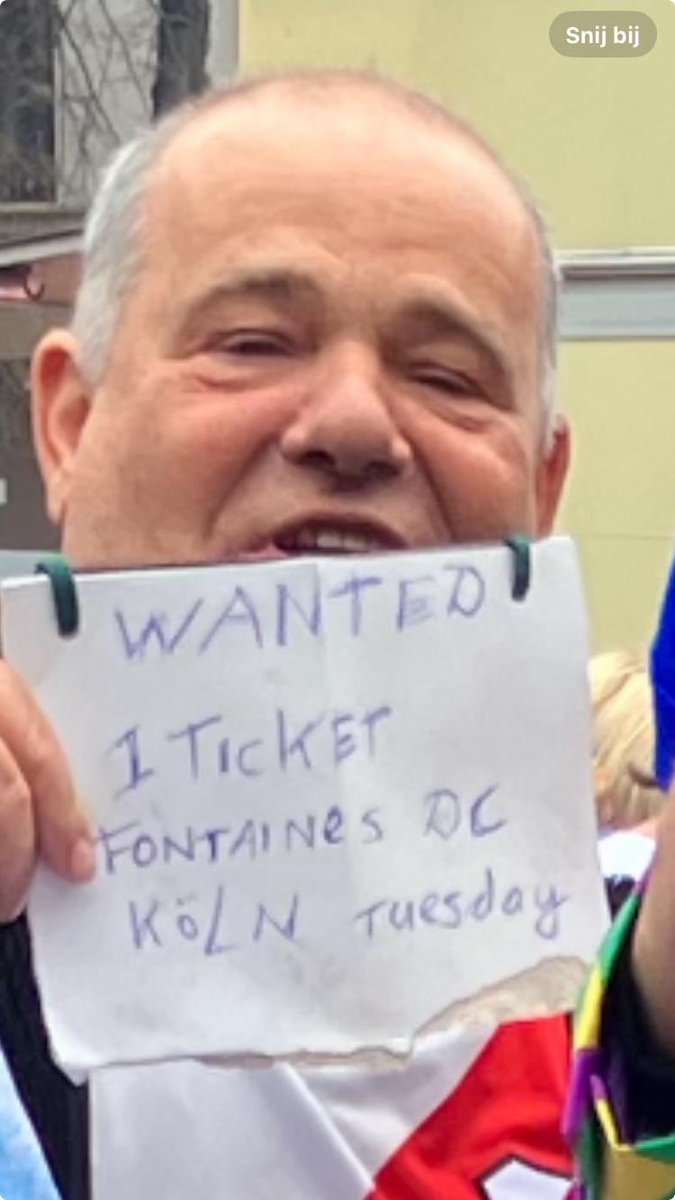 Snij bij
WANTED
1 TICKET
FONTAINES DC
KÖLN Tuesday